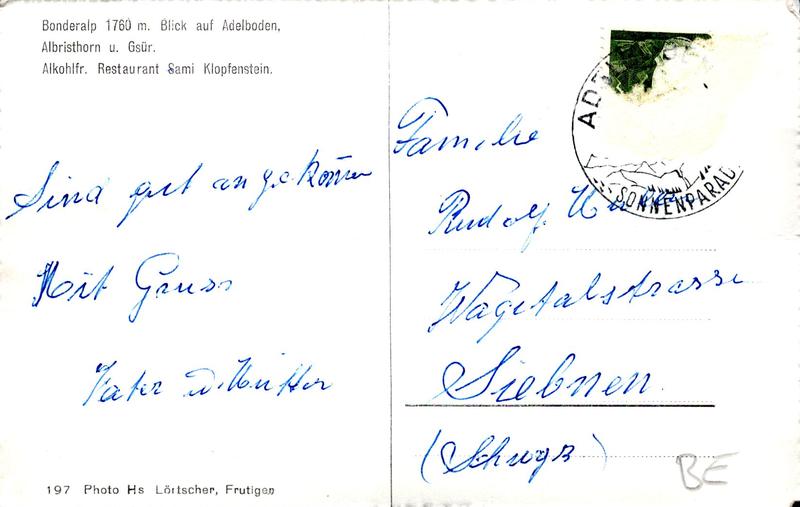 Bonderalp 1760 m. Blick auf Adelboden,
Albristhorn u. Gsür.
Alkohlfr. Restaurant Sami Klopfenstein.
Sind gut angekommen
Mit Gruss
Vater u. Mutter
197 Photo Hs Lörtscher, Frutigen
SONNENPARAD
Familie
Rudolf
Wägitalstrasse
Siebnen
(Schwyz)
BE